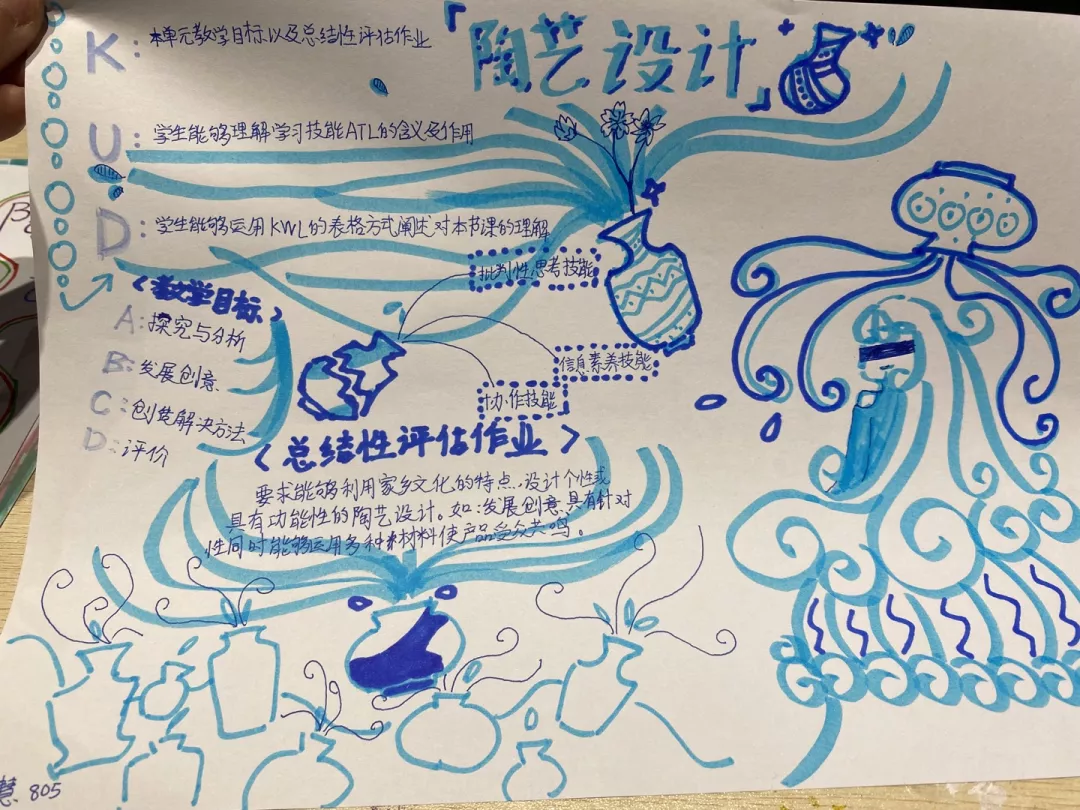 「陶艺设计」
K:本单元教学目标以及总结性评估作业
U:学生能够理解学习技能ATL的含义与作用
D:学生能够运用KWL的表格方式阐述对本节课的理解
批判性思考技能
信息素养技能
协作技能
<教学目标>
A:探究与分析
B:发展创意
C:创造解决方法
D:评价
<总结性评估作业>
要求能够利用家乡文化的特点,设计个性或
具有功能性的陶艺设计。如:发展创意,具有针对
性同时能够运用多种素材料使产品受众共鸣。
慧 805